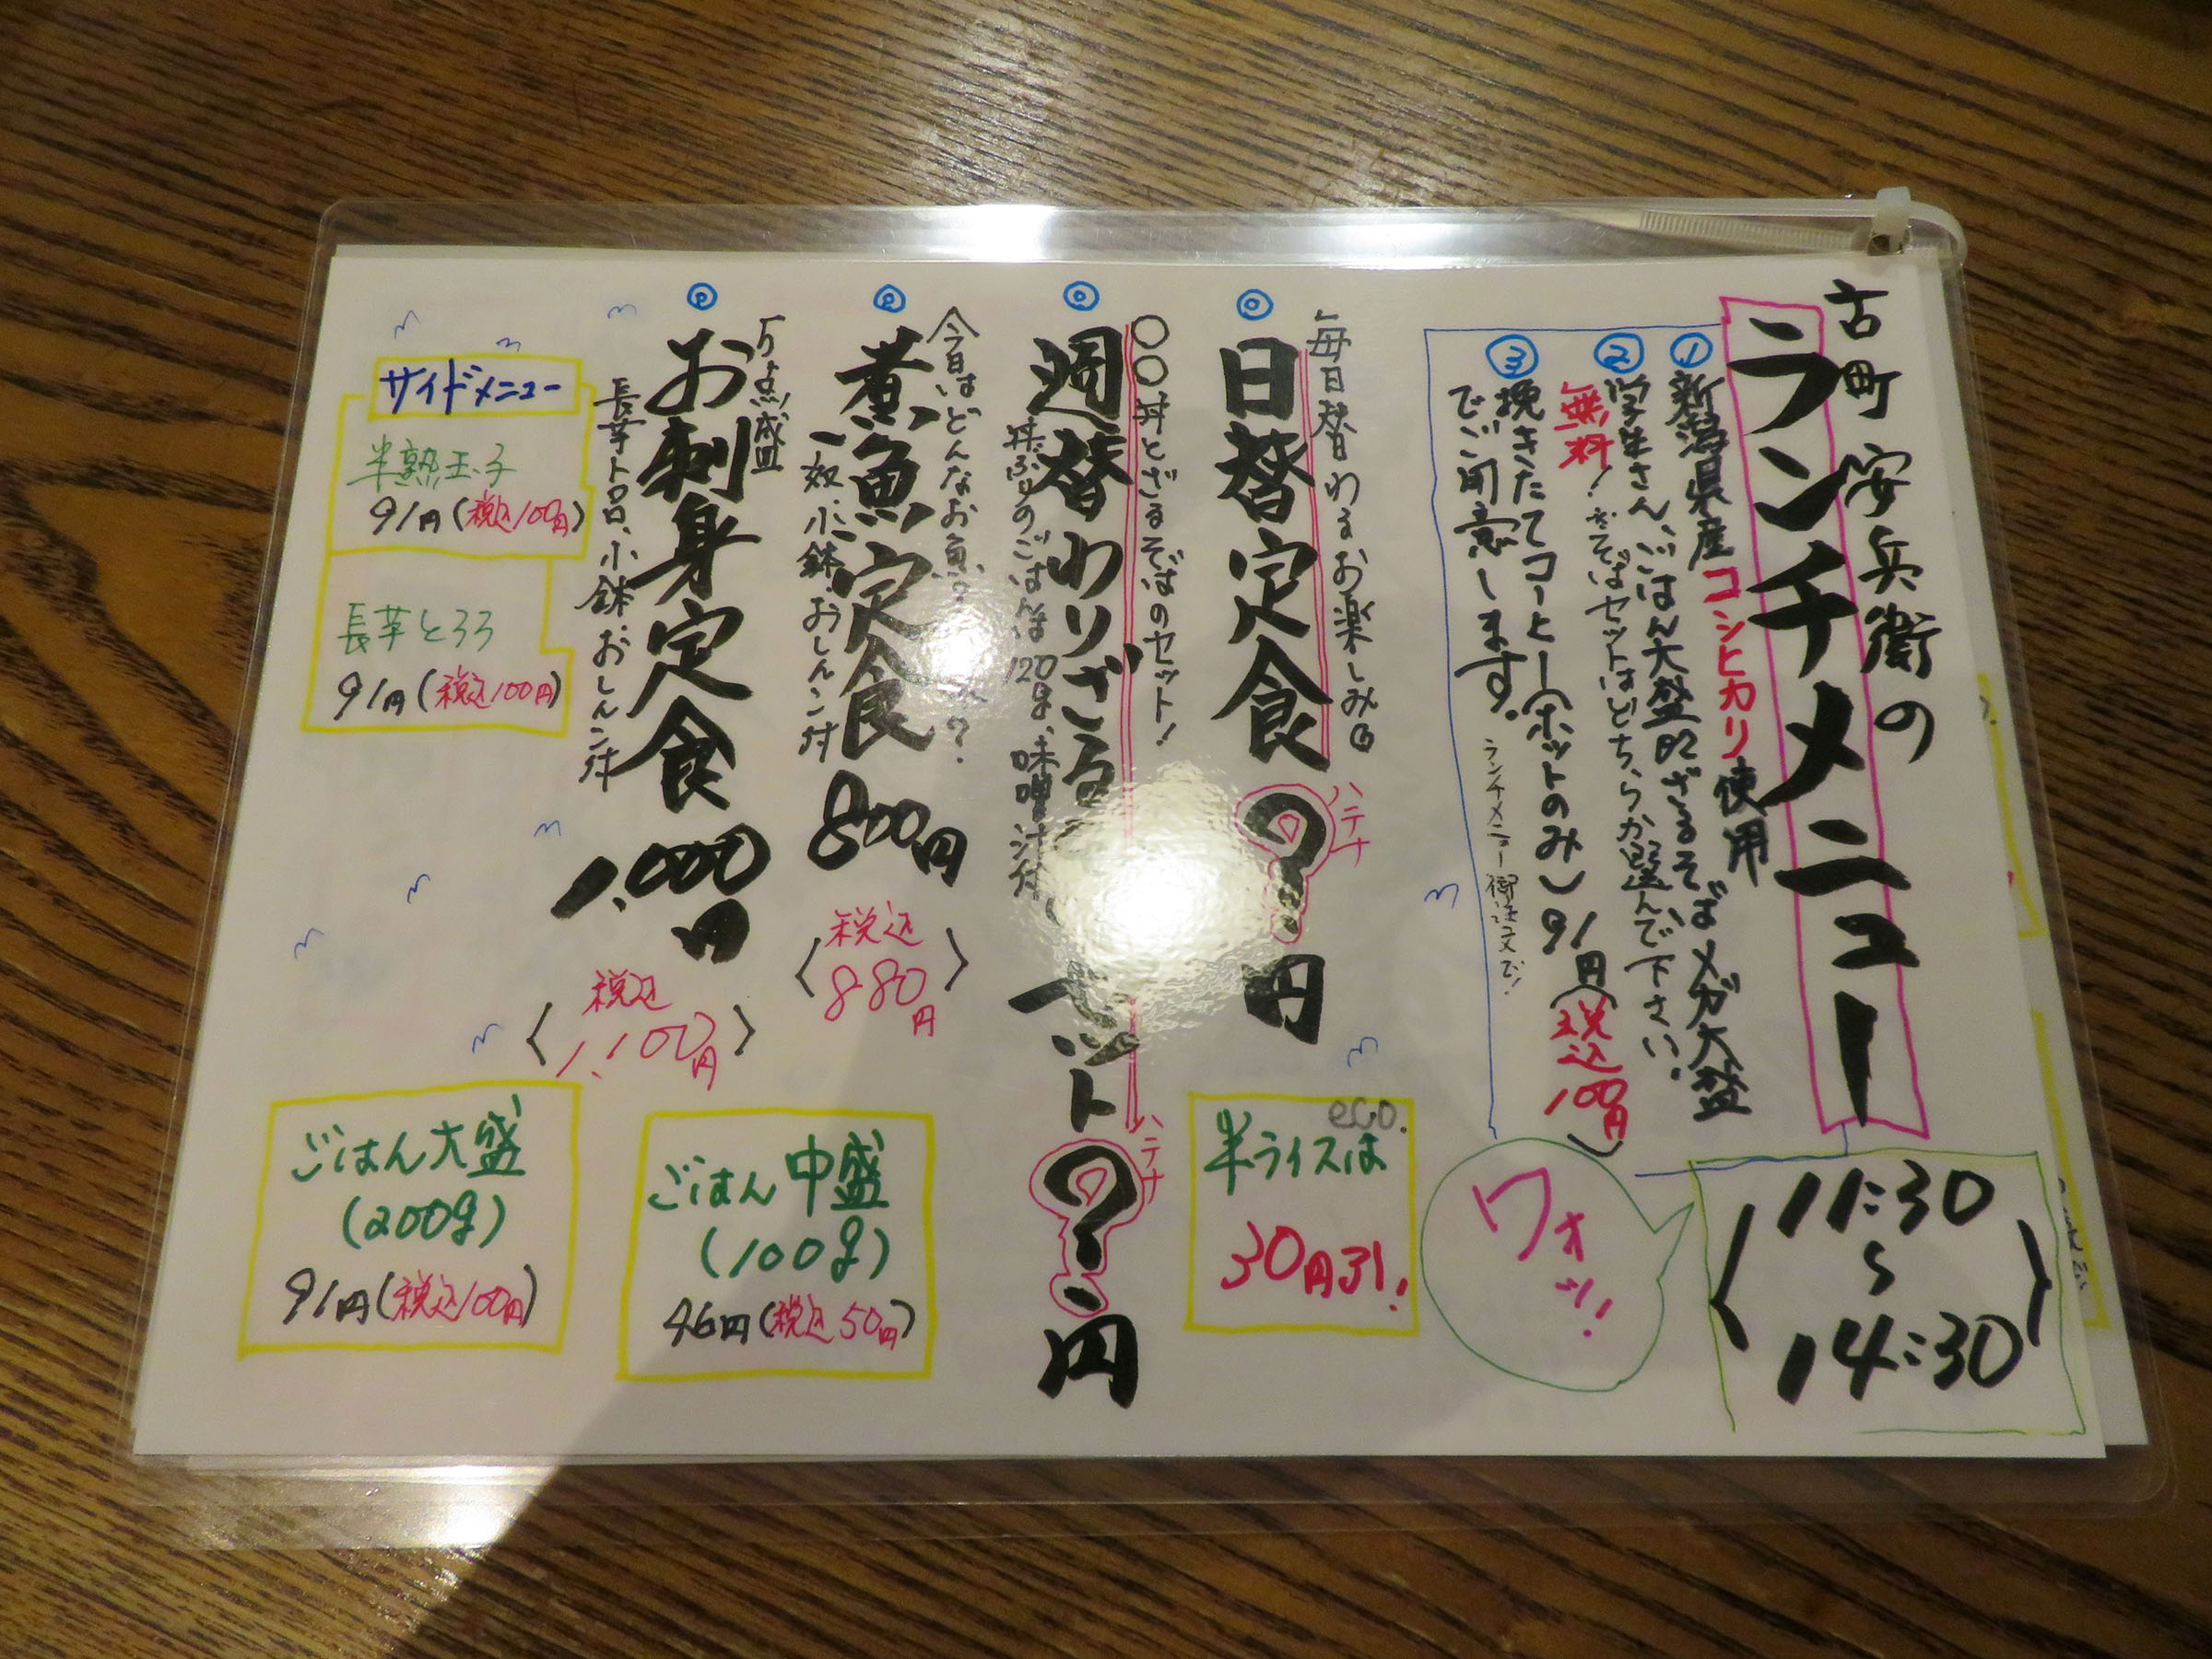 古町安兵衛の
ランチメニュー
11:30
〜
14:30
ワォッ!
① 新潟県産コシヒカリ使用
② 学生さん、ごはん大盛 ざるそばメガ大盛
無料! ※そばセットはどちらか選んで下さい。
③ 挽きたてコーヒー(ホットのみ)91円(税込100円)
でご用意します。
ランチメニュー御注文で!
毎日替わるお楽しみ
日替定食 ?円
ハテナ
eco.
半ライスは
30円引!
〇〇丼とざるそばのセット!
週替わりざる セット ?円
ハテナ
丼ぶりのごはんは120g、味噌汁付
今日はどんなお魚?
煮魚定食 800円
〈税込880円〉
奴、小鉢、おしんこ付
5点盛
お刺身定食 1,000円
〈税込1,100円〉
長芋トロロ、小鉢、おしんこ付
ごはん中盛
(100g)
46円(税込50円)
サイドメニュー
半熟玉子
91円(税込100円)
長芋とろろ
91円(税込100円)
ごはん大盛
(200g)
91円(税込100円)